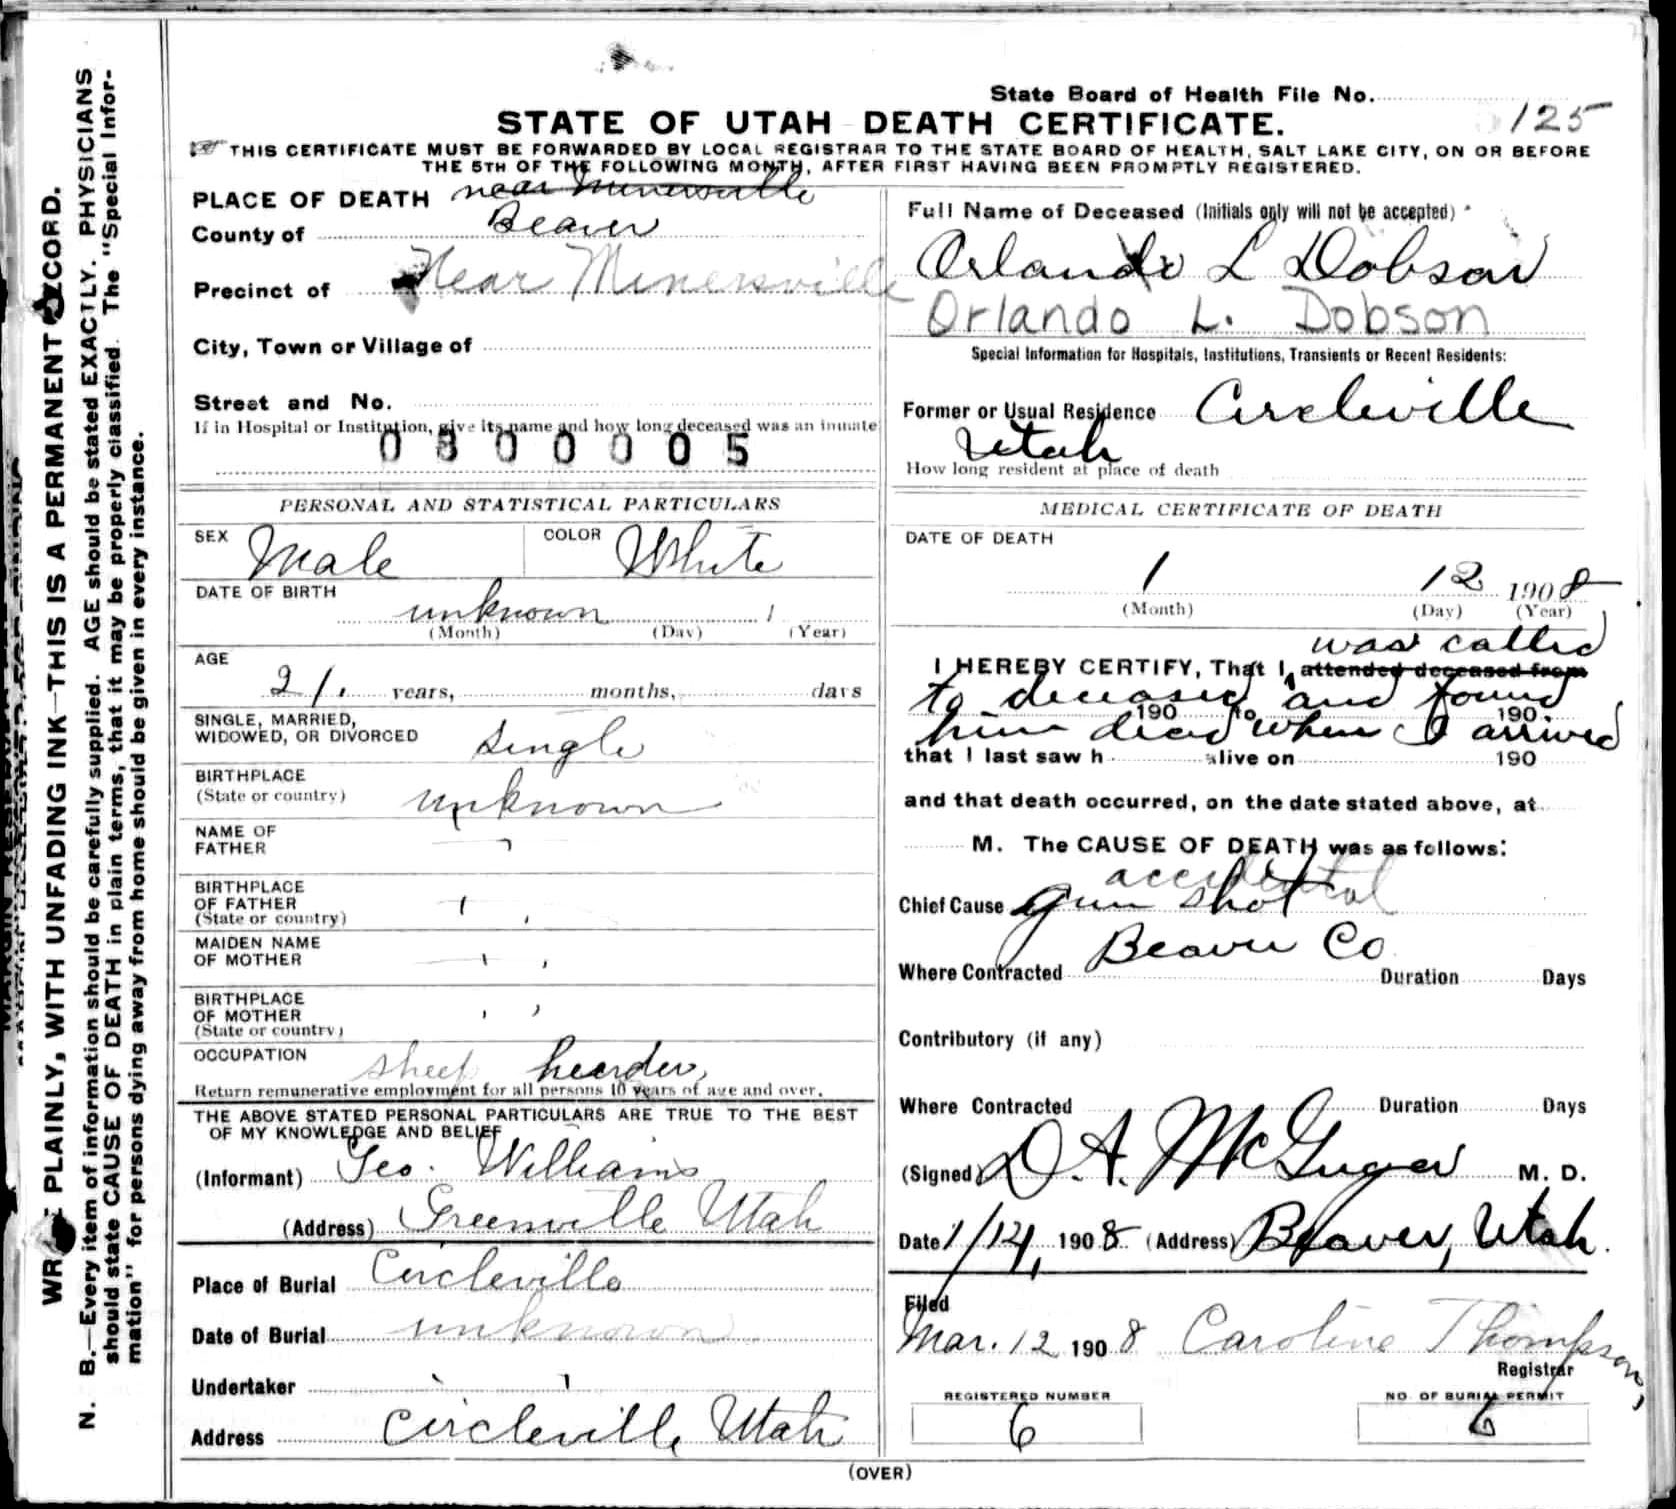 State Board of Health File No. 125
STATE OF UTAH DEATH CERTIFICATE.
THIS CERTIFICATE MUST BE FORWARDED BY LOCAL REGISTRAR TO THE STATE BOARD OF HEALTH, SALT LAKE CITY, ON OR BEFORE
THE 5TH OF THE FOLLOWING MONTH, AFTER FIRST HAVING BEEN PROMPTLY REGISTERED.
PLACE OF DEATH near Minersville
County of Beaver
Precinct of Near Minersville
City, Town or Village of
Street and No.
If in Hospital or Institution, give its name and how long deceased was an inmate
0300005
PERSONAL AND STATISTICAL PARTICULARS
SEX Male COLOR White
DATE OF BIRTH unknown 1
(Month) (Day) (Year)
AGE
21. years, months, days
SINGLE, MARRIED,
WIDOWED, OR DIVORCED single
BIRTHPLACE
(State or country) unknown
NAME OF
FATHER
BIRTHPLACE
OF FATHER
(State or country)
MAIDEN NAME
OF MOTHER
BIRTHPLACE
OF MOTHER
(State or country)
OCCUPATION sheep heerder,
Return remunerative employment for all persons 10 years of age and over.
THE ABOVE STATED PERSONAL PARTICULARS ARE TRUE TO THE BEST
OF MY KNOWLEDGE AND BELIEF
(Informant) Geo. Williams
(Address) Greenville Utah
Place of Burial Circleville
Date of Burial unknown
Undertaker
Address Circleville Utah
Full Name of Deceased (Initials only will not be accepted)
Orlando L Dobson
Orlando L. Dobson
Special Information for Hospitals, Institutions, Transients or Recent Residents:
Former or Usual Residence Circleville
Utah
How long resident at place of death
MEDICAL CERTIFICATE OF DEATH
DATE OF DEATH
1 12 1908
(Month) (Day) (Year)
was called
I HEREBY CERTIFY, That I attended deceased from
to deceased and found
190 to 190
him dead when I arrived
that I last saw h alive on 190
and that death occurred, on the date stated above, at
M. The CAUSE OF DEATH was as follows:
accidental
Chief Cause gun shot
Beaver Co
Where Contracted Duration Days
Contributory (if any)
Where Contracted Duration Days
(Signed) D. A. McGregor M. D.
Date 1/14, 1908 (Address) Beaver, Utah.
Filed
Mar. 12 1908 Caroline Thompson,
Registrar
REGISTERED NUMBER NO. OF BURIAL PERMIT
6 6
(OVER)
WRITE PLAINLY, WITH UNFADING INK—THIS IS A PERMANENT RECORD.
N. B.—Every item of information should be carefully supplied. AGE should be stated EXACTLY. PHYSICIANS
should state CAUSE OF DEATH in plain terms, that it may be properly classified. The "Special Infor-
mation" for persons dying away from home should be given in every instance.